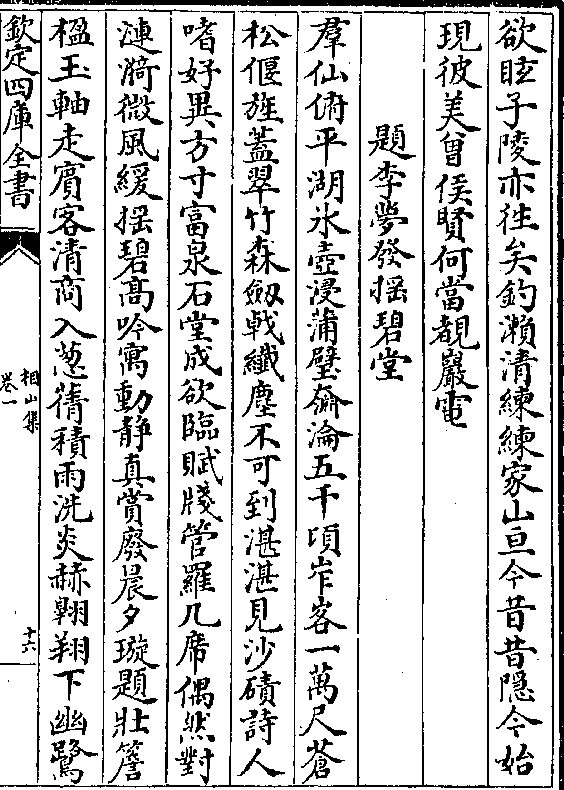 欲眭子陵亦徃矣釣瀬清練練家山亘今昔昔隠今始
現彼美曾侯賢何當覩巖電
題李夢發揺碧堂
羣仙俯平湖氷壺浸蒲璧奫淪五千頃岝客一萬尺蒼
松偃旌蓋翠竹森劔㦸纎塵不可到湛湛見沙磧詩人
嗜好異方寸富泉石堂成欲臨賦牋管羅几席偶然對
漣漪微風緩揺碧髙吟寓動静真賞廢晨夕璇題壯簷
楹玉軸走賓客清商入葱蒨積雨洗炎赫翾翔下幽鷺
欽定四庫全書
相山集
卷一
十六